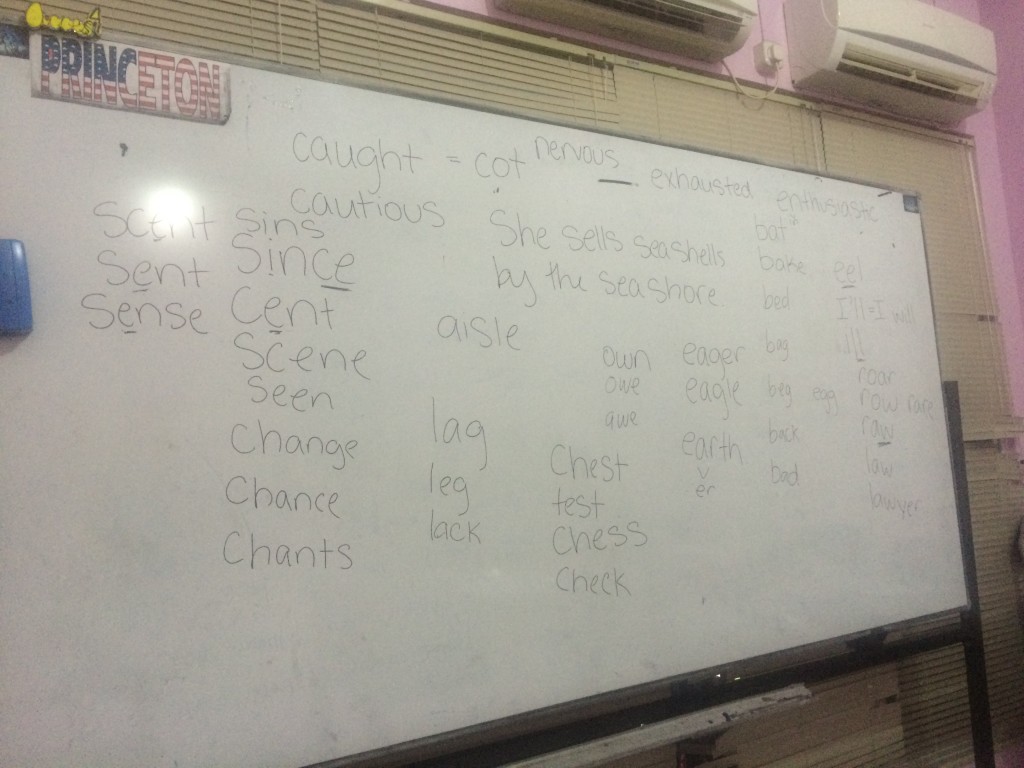 PRINCETON
caught = cot
nervous
exhausted
enthusiastic
cautious
scent
sent
sense
sins
since
cent
scene
seen
change
chance
chants
aisle
lag
leg
lack
She sells seashells
by the seashore
own
owe
awe
chest
test
chess
check
eager
eagle
earth
er
bat
bake
bed
bag
beg egg
back
bad
eel
I'll = I will
ill
roar
row rare
raw
law
lawyer